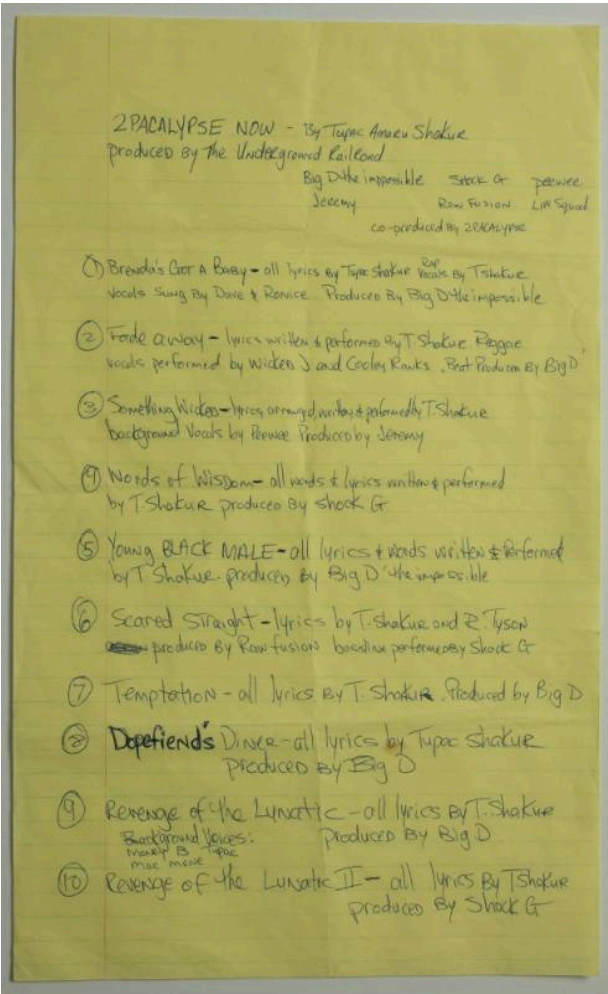 2PACALYPSE NOW - By Tupac Amaru Shakur
produced By The Underground Railroad
Big D the impossible Shock G peewee
Jeremy Raw Fusion Live Squad
co-produced By 2PACALYPSE
① Brenda's Got A Baby - all lyrics By Tupac Shakur Rap Vocals By T Shakur
vocals sung By Dave & Ronice Produced By Big D the impossible
② Fade away - lyrics written & performed By T Shakur Reggae
vocals performed by Wicked J and Cooley Ranks. Beat Produced By Big D
③ Something Wicked - lyrics arranged, written & performed by T. Shakur
background Vocals by Peewee Produced by Jeremy
④ Words of Wisdom - all words & lyrics written & performed
by T Shakur produced By Shock G
⑤ Young BLACK MALE - all lyrics & words written & Performed
by T. Shakur. produced By Big D the impossible
⑥ Scared Straight - lyrics by T. Shakur and R. Tyson
produced By Raw fusion bassline performed By Shock G
⑦ Temptation - all lyrics By T. Shakur. Produced by Big D
⑧ Dopefiend's Diner - all lyrics by Tupac Shakur
produced By Big D
⑨ Revenge of the Lunatic - all lyrics By T. Shakur
Background Voices: Produced By Big D
Money B Tupac
mac mone
⑩ Revenge of the Lunatic II - all lyrics By T Shakur
produced By Shock G